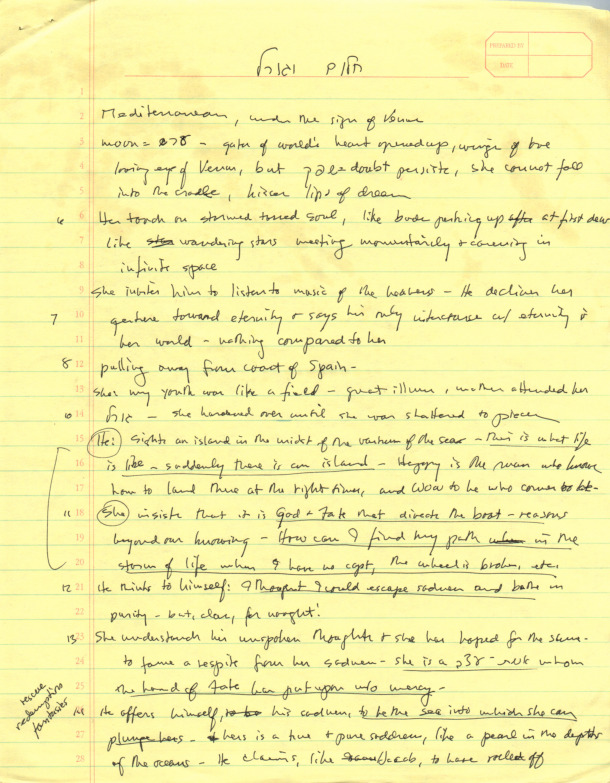 חלום וגורל
PREPARED BY
DATE
1
2 Mediterranean, under the sign of Venus
3 moon = - gates of world's heart opened up, wings of love
4 loving eye of Venus, but = doubt persists, she cannot fall
5 into the cradle, kisses lips of dream
6 6 Her touch on stormed tossed soul, like buds pushing up after at first dew
7 like stars wandering stars meeting momentarily + caressing in
8 infinite space
9 She invites him to listen to music of the heavens - He declines her
7 10 gesture toward eternity + says his only intercourse w/ eternity is
11 her world - nothing compared to her
8 12 pulling away from coast of Spain -
13 She: my youth was like a field - great illness, mother attended her
10 14 גורל - she hardened over until she was shattered to pieces
15 He: Sights an island in the midst of the vastness of the sea - This is what life
16 is like - suddenly there is an island - Happy is the man who knows
17 how to land there at the right times, and woe to he who comes to late
11 18 She insists that it is God + Fate that directs the boat - reasons
19 beyond our knowing - How can I find my path when in the
20 storm of life when I have no capt, the wheel is broken, etc.
12 21 He thinks to himself: I thought I would escape sadness and bathe in
22 purity - but, alas, for nought!
13 23 She understands his unspoken thoughts + she has hoped for the same
24 to fame a respite from her sadness - she is a - whom
25 the hand of Fate has put upon w/o mercy -
rescue
redemptive
fantasies
14 26 He offers himself, to be his sadness, to be the sea into which she can
27 plunge hers - hers is a true + pure sadness, like a pearl in the depths
28 of the oceans - He claims, like Jacob, to have rolled off